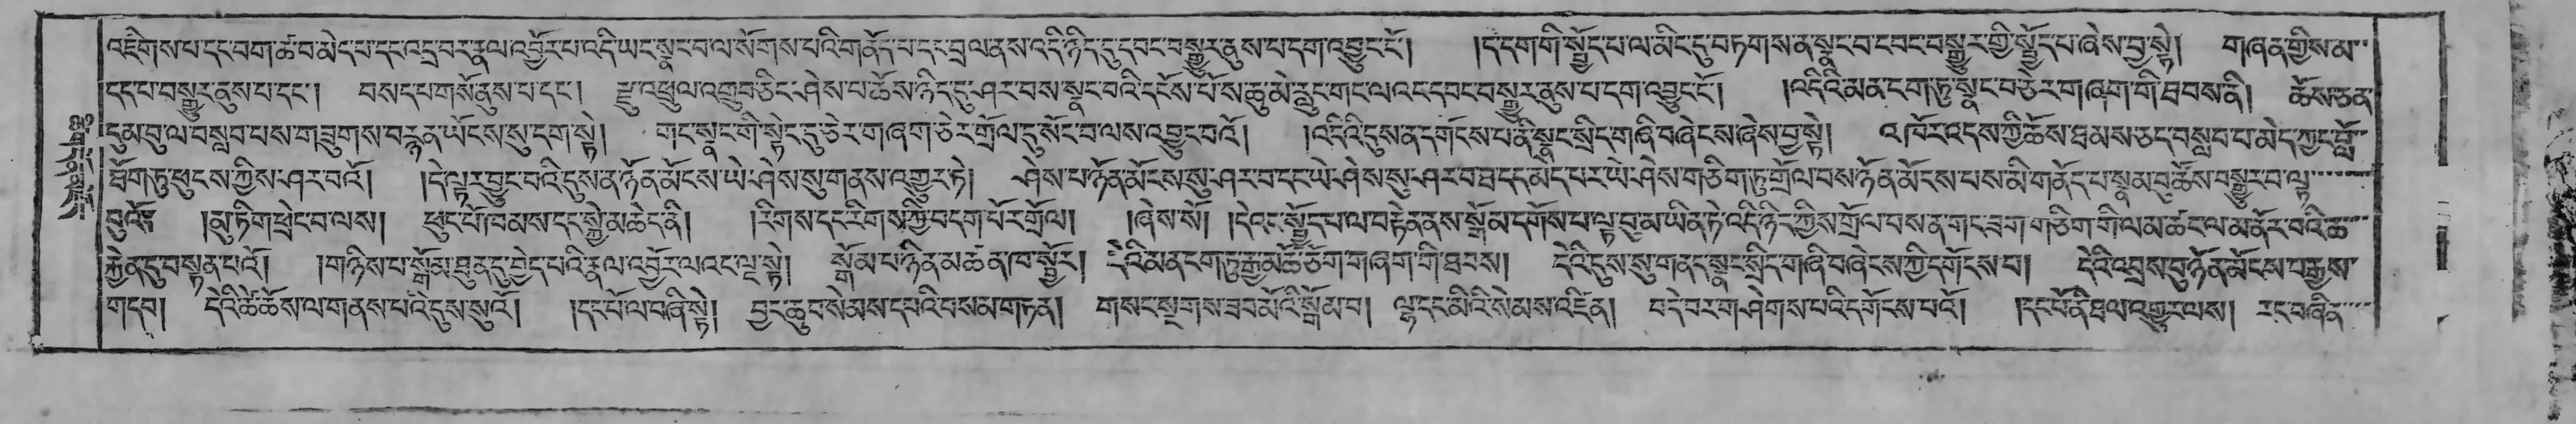 འཇིགས་པ་དང་བག་ཚ་བ་མེད་པ་དང་འདྲ་བར་རྣལ་འབྱོར་པ་འདི་ཡང་སྣང་བ་ལ་སོགས་པའི་གནོད་པ་དང་བྲལ་ནས་འདི་ཉིད་དུ་དབང་བསྒྱུར་ནུས་པ་དག་འབྱུང་ངོ༌། །ད་དག་གི་སྤྱོད་པ་ལ་མིང་དུ་བཏགས་ན་སྣང་བ་དབང་བསྒྱུར་གྱི་སྤྱོད་པ་ཞེས་བྱ་སྟེ། གཞན་གྱིས་མ་
དད་པ་བསྒྱུར་ནུས་པ་དང༌། བསད་པ་གསོ་ནུས་པ་དང༌། རྫུ་འཕྲུལ་འགྲུབ་ཅིང་ཤེས་པ་ཆོས་ཉིད་དུ་ཤར་བས་སྣང་བའི་དངོས་པོ་ས་ཆུ་མེ་རླུང་གང་ལའང་དབང་བསྒྱུར་ནུས་པ་དག་འབྱུང་ངོ༌། །འདིའི་མན་ངག་ཏུ་སྣང་བ་ཅེར་གཞག་གི་ཐབས་ནི། ཆོས་ཅན་
དུམ་བུ་ལ་བསླབ་པས་གཟུགས་བརྙན་ཡོངས་སུ་དག་སྟེ། གང་སྣང་གི་སྟེང་དུ་ཅེར་གཞག་ཅེར་གྲོལ་དུ་སོང་བ་ལས་འབྱུང་བའོ། །འདིའི་དུས་ན་དགོངས་པ་ནི་སྣང་སྲིད་གཞི་བཞེངས་ཞེས་བྱ་སྟེ། འཁོར་འདས་ཀྱི་ཆོས་ཐམས་ཅད་བསླབ་པ་མེད་ཀྱང་བློ་
ཐོག་ཏུ་ཕུངས་ཀྱིས་ཤར་བའོ། །དེ་ལྟར་བྱུང་བའི་དུས་ན་ཉོན་མོངས་ཡེ་ཤེས་སུ་གནས་འགྱུར་ཏེ། ཤེས་པ་ཉོན་མོངས་སུ་ཤར་བ་དང་ཡེ་ཤེས་སུ་ཤར་བ་ཐ་དད་མེད་པར་ཡེ་ཤེས་གཅིག་ཏུ་གྲོལ་བས་ཉོན་མོངས་པས་མི་གནོད་པ་སྣུམ་བུ་ཚོས་བསྒྱུར་བ་ལྟ་
བུའོ། །མུ་ཏིག་ཕྲེང་བ་ལས། ཕུང་པོ་ཁམས་དང་སྐྱེ་མཆེད་ནི། །རིགས་དང་རིགས་ཀྱི་བདག་པོར་གྲོལ། །ཞེས་སོ། །དེ་འང་སྤྱོད་པ་ལ་བརྟེན་ནས་སྒོམ་དགོས་པ་ལྟ་བུ་མ་ཡིན་ཏེ་འདི་ཉིད་ཀྱིས་གྲོལ་བས་ན་གང་ཟག་གཅིག་གི་ལམ་ཚང་ལ་མ་ནོར་བའི་ཆ་
རྐྱེན་དུ་བསྟན་པའོ། །གཉིས་པ་སྒོམ་ཐུན་དུ་བྱེད་པའི་རྣལ་འབྱོར་ལའང་ལྔ་སྟེ། སྒོམ་པ་ཉིན་མཚན་ཁ་སྦྱོར། དེའི་མན་ངག་ཏུ་རྒྱ་མཚོ་ཅོག་གཞག་གི་ཐབས། དེའི་དུས་སུ་གནད་སྣང་སྲིད་གཞི་བཞེངས་ཀྱི་དགོངས་པ། དེའི་འབྲས་བུ་ཉོན་མོངས་བརྒྱས་
གདབ། དེའི་ཚེ་ཆོས་ལ་གནས་པའི་དུས་སུའོ། །དང་པོ་ལ་བཞི་སྟེ། བྱང་ཆུབ་སེམས་དཔའི་བསམ་གཏན། གསང་སྔགས་ཟབ་མོའི་སྒོམ་པ། ལྷ་དང་མིའི་སེམས་འཛིན། བདེ་བར་གཤེགས་པའི་དགོངས་པའོ། །དང་པོ་ནི་ཐལ་འགྱུར་ལས། རང་བཞིན་